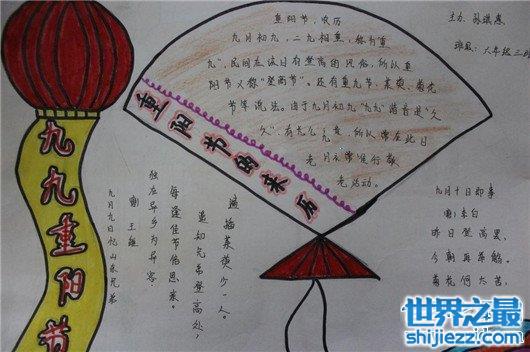 九九重阳节
重阳节的来历
重阳节,农历
九月初九,二九相重,称为"重
九",民间在该日有登高的风俗,所以重
阳节又称"登高节"。还有重九节、茱萸、菊花
节等说法。由于九月初九"九九"谐音是"久
久",有长久之意,所以常在此日
行敬
老活动。
九月九日忆山东兄弟
唐 王维
独在异乡为异客,
每逢佳节倍思亲。
遥知兄弟登高处,
遍插茱萸少一人。
主办:孙
班级:六年级三班
九月十日即事
唐:李白
昨日登高罢,
今朝再举觞。
菊花何太苦,
世界之最
shijiezzi.com